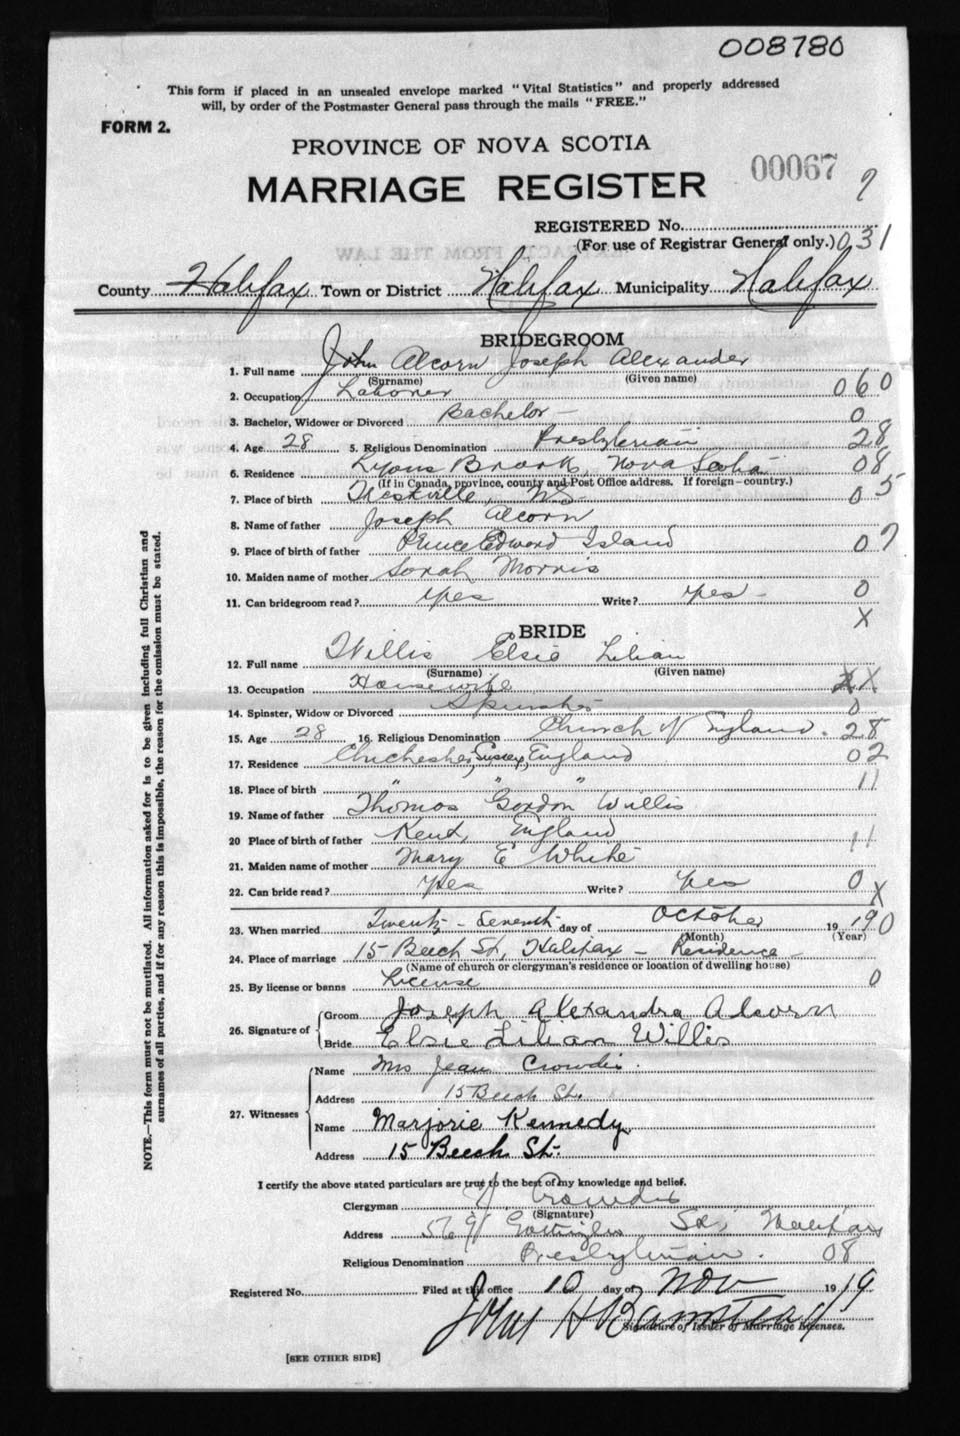 008780
This form if placed in an unsealed envelope marked "Vital Statistics" and properly addressed
will, by order of the Postmaster General pass through the mails "FREE."
FORM 2.
PROVINCE OF NOVA SCOTIA
00067
MARRIAGE REGISTER
REGISTERED No.
(For use of Registrar General only.) 031
County Halifax Town or District Halifax Municipality Halifax
BRIDEGROOM
1. Full name John Alcorn Joseph Alexander
(Surname) (Given name)
2. Occupation Laborer 060
3. Bachelor, Widower or Divorced Bachelor - 0
4. Age 28 5. Religious Denomination Presbyterian 28
6. Residence Lyons Brook, Nova Scotia 08
(If in Canada, province, county and Post Office address. If foreign-country.)
7. Place of birth NS 05
8. Name of father Joseph Alcorn
9. Place of birth of father Prince Edward Island 07
10. Maiden name of mother Sarah Morris
11. Can bridegroom read? Yes Write? Yes - 0
X
BRIDE
12. Full name Willis Elsie Lilian
(Surname) (Given name)
13. Occupation Housewife X
14. Spinster, Widow or Divorced Spinster 0
15. Age 28 16. Religious Denomination Church of England. 28
17. Residence Chichester, Sussex, England 02
18. Place of birth " " " 11
19. Name of father Thomas Gordon Willis
20 Place of birth of father Kent, England 11
21. Maiden name of mother Mary E White
22. Can bride read? Yes Write? Yes 0
X
23. When married Twenty-Seventh day of October 19 19 0
(Month) (Year)
24. Place of marriage 15 Beech St, Halifax - Residence -
(Name of church or clergyman's residence or location of dwelling house)
25. By license or banns License 0
26. Signature of
Groom Joseph Alexandra Alcorn
Bride Elsie Lilian Willis
27. Witnesses
Name Mrs Jean Crowdis.
Address 15 Beech St.
Name Marjorie Kennedy
Address 15 Beech St.
I certify the above stated particulars are true to the best of my knowledge and belief.
Clergyman Crowdis
(Signature)
Address Halifax
Religious Denomination Presbyterian. 08
Registered No. Filed at this office 10 day of Nov 19 19
John H Barnstead
Signature of Issuer of Marriage Licenses.
[SEE OTHER SIDE]
NOTE.—This form must not be mutilated. All information asked for is to be given including full Christian and
surnames of all parties, and if for any reason this is impossible, the reason for the omission must be stated.